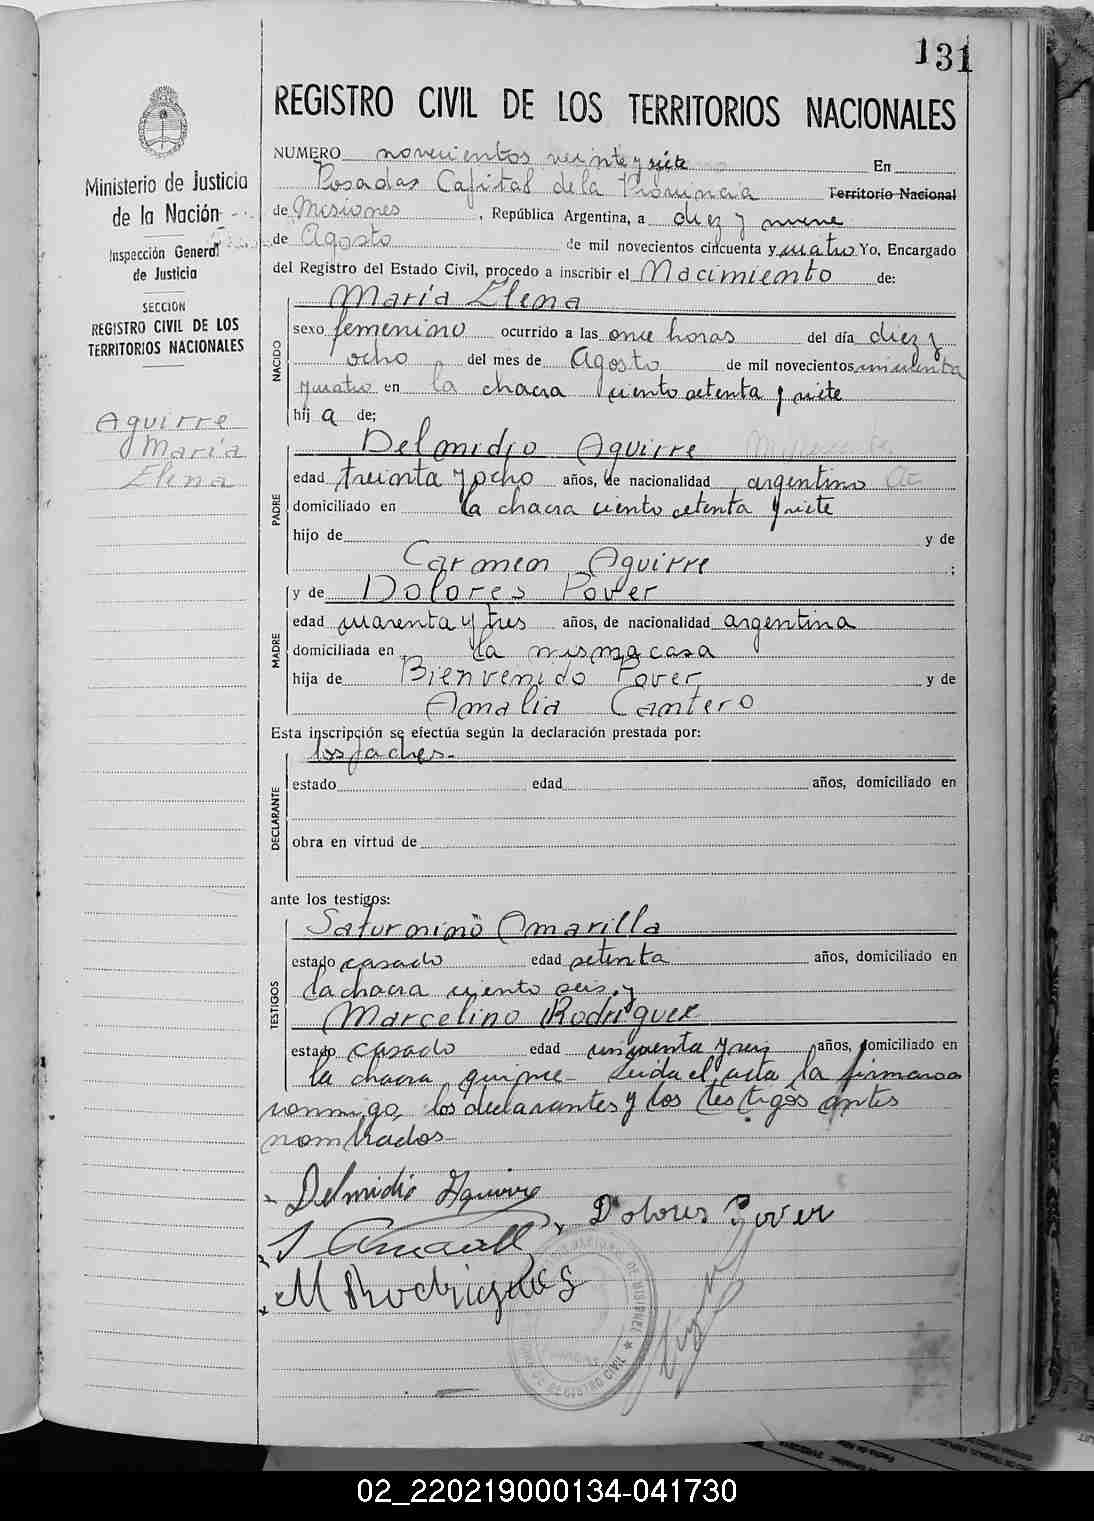 131
REGISTRO CIVIL DE LOS TERRITORIOS NACIONALES
Ministerio de Justicia
de la Nación
Inspección General
de Justicia
SECCION
REGISTRO CIVIL DE LOS
TERRITORIOS NACIONALES
Aguirre
María
Elena
NUMERO novecientos veinte y siete En
Posadas Capital de la Provincia Territorio Nacional
de Misiones, República Argentina, a diez y nueve
de Agosto de mil novecientos cincuenta y cuatro Yo, Encargado
del Registro del Estado Civil, procedo a inscribir el Nacimiento de:
NACIDO
María Elena
sexo femenino ocurrido a las once horas del día diez y
ocho del mes de Agosto de mil novecientos cincuenta
y cuatro en la chacra ciento setenta y siete
hij a de;
PADRE
Delmidio Aguirre
edad treinta y ocho años, de nacionalidad argentino
domiciliado en la chacra ciento setenta y siete
hijo de y de
Carmen Aguirre ;
MADRE
y de Dolores Pover
edad cuarenta y tres años, de nacionalidad argentina
domiciliada en la misma casa
hija de Bienvenido Pover y de
Amalia Cantero
Esta inscripción se efectúa según la declaración prestada por:
DECLARANTE
los padres.-
estado edad años, domiciliado en
obra en virtud de
ante los testigos:
TESTIGOS
Saturnino Amarilla
estado casado edad setenta años, domiciliado en
la chacra ciento seis y
Marcelino Rodriguez
estado casado edad cincuenta y seis años, domiciliado en
la chacra quince- Leida el acta la firmaron
conmigo, los declarantes y los testigos antes
nombrados-
Delmidio Aguirre
Dolores Pover
S Amarilla
M Rodriguez
REGISTRO CIVIL
02_220219000134-041730